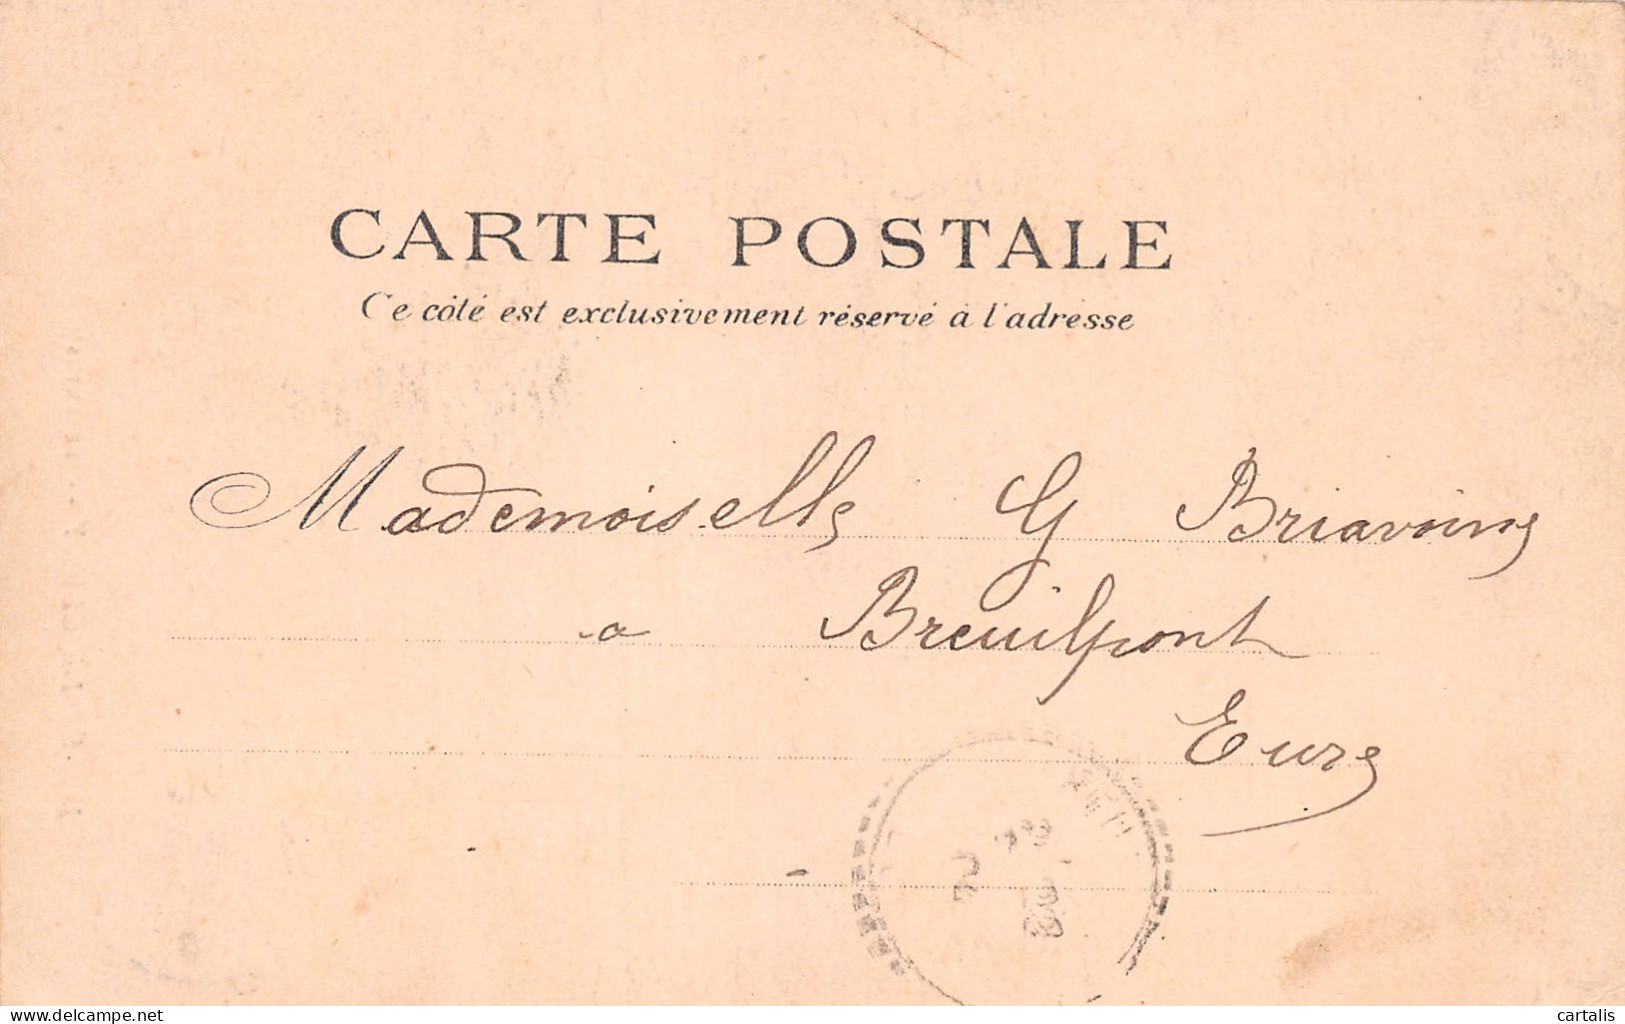 CARTE POSTALE
Ce côté est exclusivement réservé à l'adresse
Mademoiselle G Briavoine
a Breuilpont
Eure
delcampe.net
cartalis